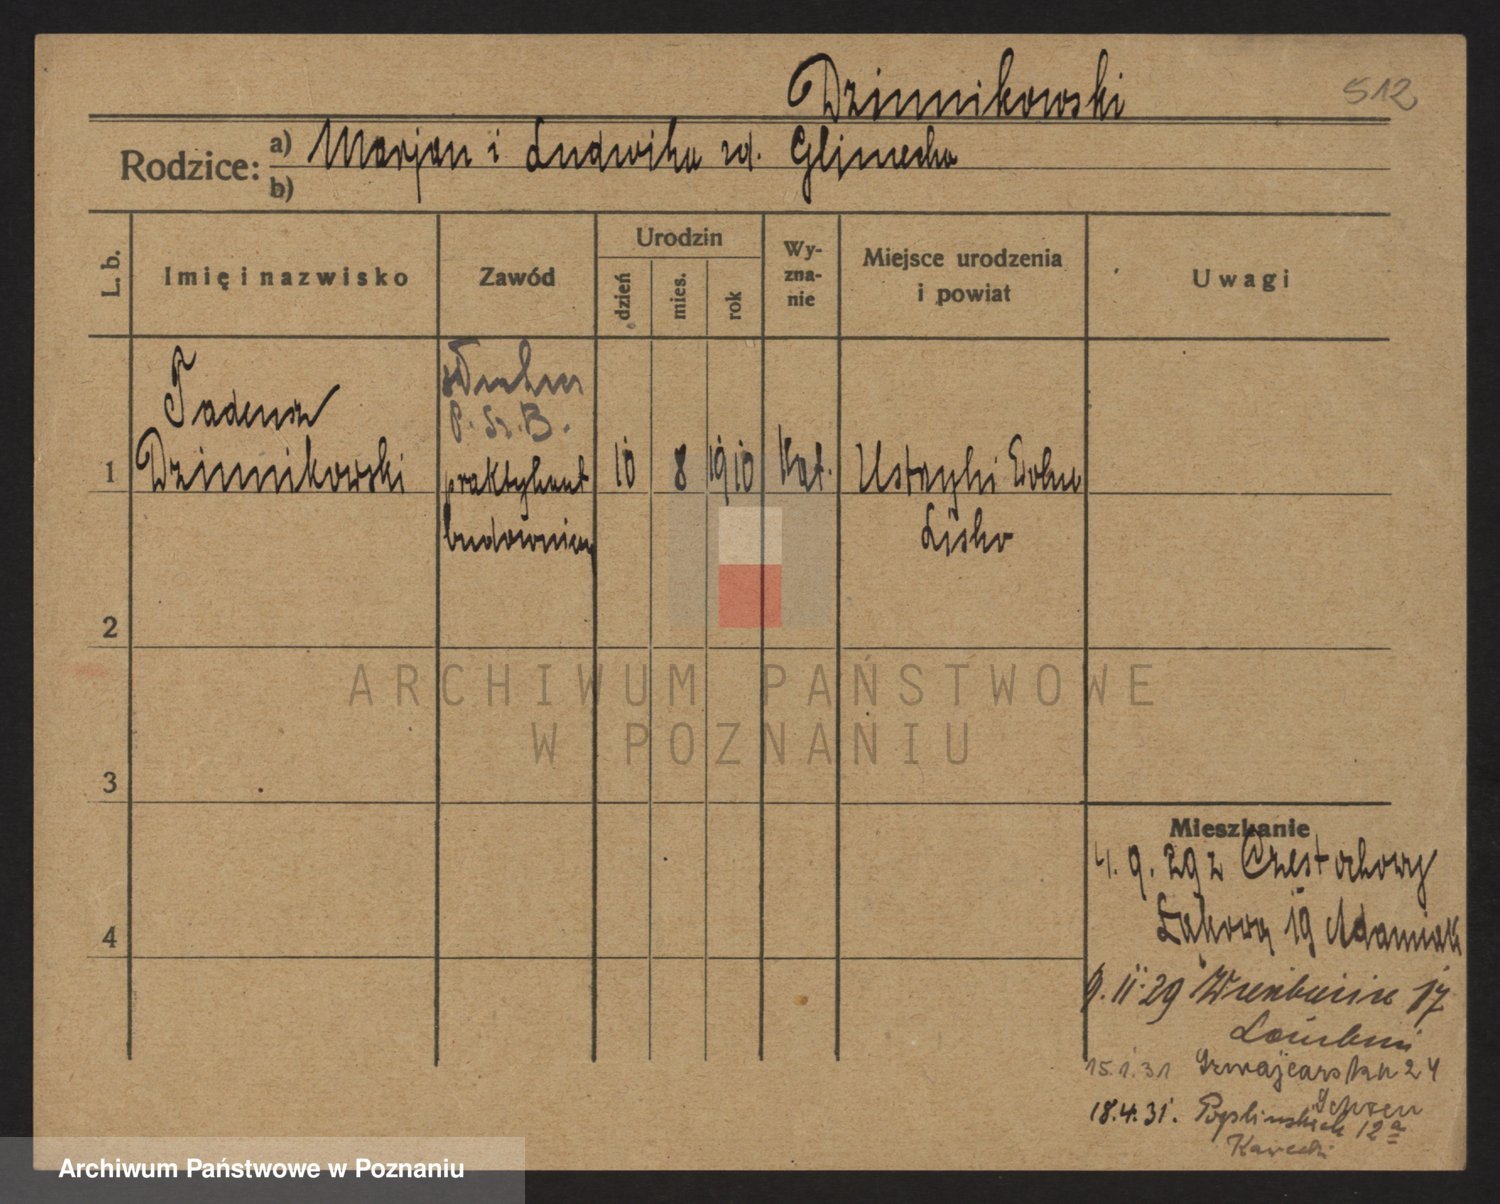 Dzimnikowski
512
Rodzice:
a) Marjan i Ludwika zd. Glinecka
b)
L. b.
Imię i nazwisko
Zawód
Urodzin
dzień
mies.
rok
Wy-
zna-
nie
Miejsce urodzenia
i powiat
Uwagi
1
Tadeusz
Dzimnikowski
P. Sz. B.
praktykant
10
8
1910
Kat.
Ustrzyki Dolne
Lisko
2
3
4
Mieszkanie
4. 9. 29 z Częstochowy
Łąkowa 19 Adamiak
9. 11. 29 17
15. 1. 31 Szwajcarska 24
18. 4. 31. 12a
Kawecki
ARCHIWUM PAŃSTWOWE
W POZNANIU
Archiwum Państwowe w Poznaniu